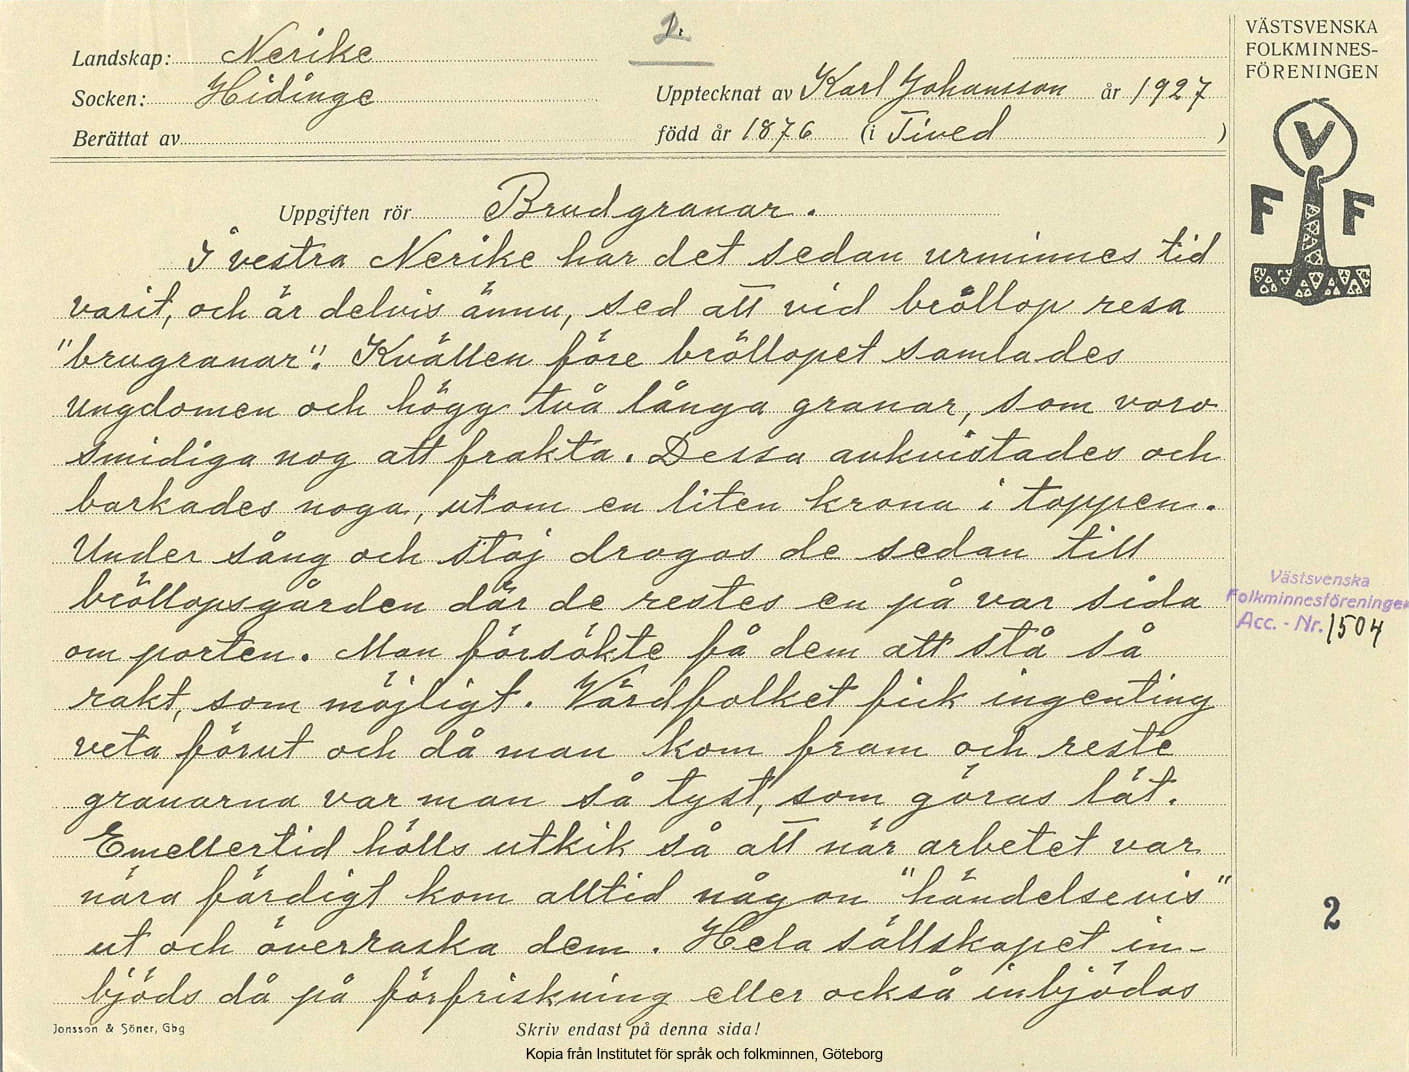 2.
Landskap: Nerike
Socken: Hidinge
Berättat av
Upptecknat av Karl Johansson år 1927
född år 1876 (i Tived )
VÄSTSVENSKA
FOLKMINNES-
FÖRENINGEN
V
F F
Uppgiften rör Brudgranar.
I vestra Nerike har det sedan urminnes tid
varit, och är delvis ännu, sed att vid bröllop resa
"brugranar". Kvällen före bröllopet samlades
ungdomen och högg två långa granar, som voro
smidiga nog att frakta. Dessa avkvistades och
barkades noga, utom en liten krona i toppen.
Under sång och stoj drogos de sedan till
bröllopsgården där de restes en på var sida
om porten. Man försökte få dem att stå så
rakt, som möjligt. Värdfolket fick ingenting
veta förut och då man kom fram och reste
granarna var man så tyst, som göras lät.
Emellertid hölls utkik så att när arbetet var
nära färdigt kom alltid någon "händelsevis"
ut och överraska dem. Hela sällskapet in-
bjöds då på förfriskning eller också inbjödos
Västsvenska
Folkminnesföreningen
Acc. - Nr. 1504
2
Jonsson & Söner, Gbg
Skriv endast på denna sida!
Kopia från Institutet för språk och folkminnen, Göteborg